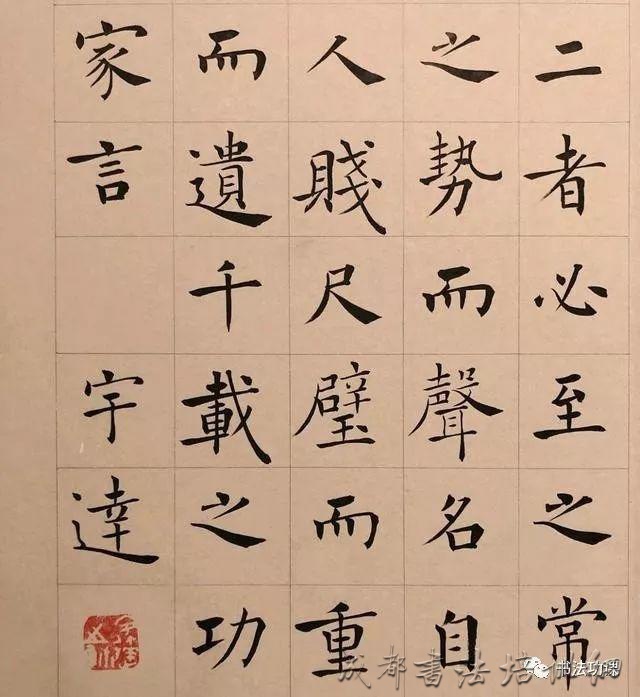 二者必至之常
之勢而聲名自
人賤尺璧而重
而遺千載之功
家言 宇達
成都书法培训网
书法功课